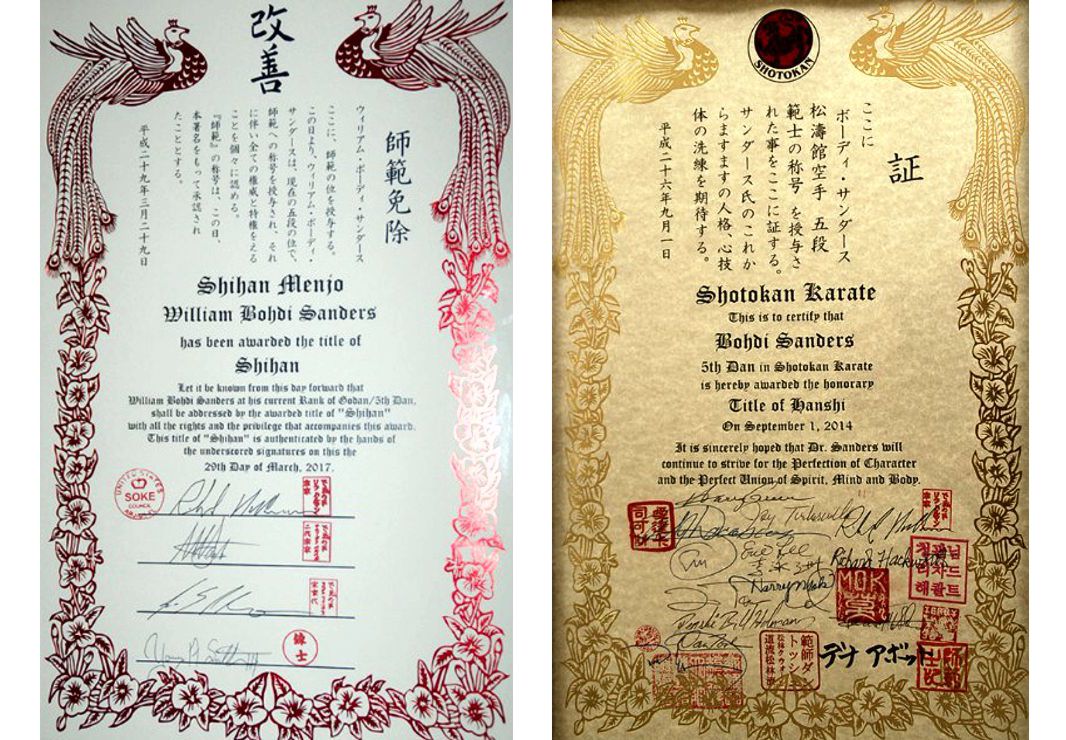 改善
師範免除
ウィリアム・ボーディ・サンダース
ここに、師範の位を授与する。
この日より、ウィリアム・ボーディ・
サンダースは、現在の五段の位で、
師範への称号を授与され、それ
に伴い全ての権威と特権をえる
ことを個々に認める。
『師範』の称号は、この日、
本署名をもって承認され
たこととする。
平成二十九年三月二十九日
Shihan Menjo
William Bohdi Sanders
has been awarded the title of
Shihan
Let it be known from this day forward that
William Bohdi Sanders at his current Rank of Godan/5th Dan,
shall be addressed by the awarded title of "Shihan"
with all the rights and the privilege that accompanies this award.
This title of "Shihan" is authenticated by the hands of
the underscored signatures on this the
29th Day of March, 2017.
UNITED STATES
SOKE
COUNCIL
錬士
SHOTOKAN
証
ここに
ボーディ・サンダース
松濤館空手 五段
範士の称号 を授与さ
れた事をここに証する。
サンダース氏のこれか
らますますの人格、心技
体の洗練を期待する。
平成二十六年九月一日
Shotokan Karate
This is to certify that
Bohdi Sanders
5th Dan in Shotokan Karate
is hereby awarded the honorary
Title of Hanshi
On September 1, 2014
It is sincerely hoped that Dr. Sanders will
continue to strive for the Perfection of Character
and the Perfect Union of Spirit, Mind and Body.
Richard Hackworth
MOK
デナ アボット